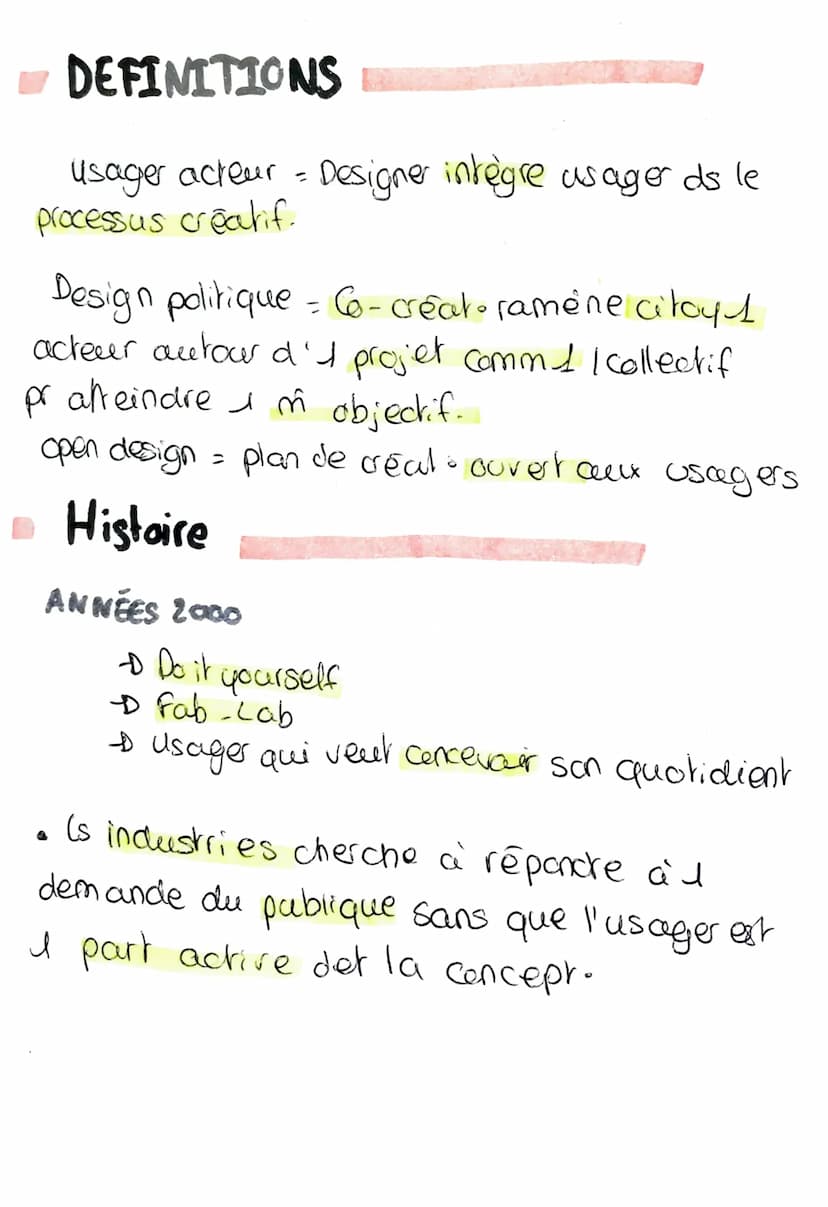 DEFINITIONS
Usager acteur = Designer intègre usager ds le
processus créatif.
Design politique = Co-créat° ramène citoy1
acteur autour d'1 projet comm1 / collectif
pr atteindre 1 m̂ objectif.
open design = plan de créat° ouvert aux usagers
Histoire
ANNÉES 2000
→ Do it yourself
→ Fab-Lab
→ Usager qui veut concevoir son quotidient
• Ls industries cherche à répondre à 1
demande du publique sans que l'usager est
1 part active det la concept°